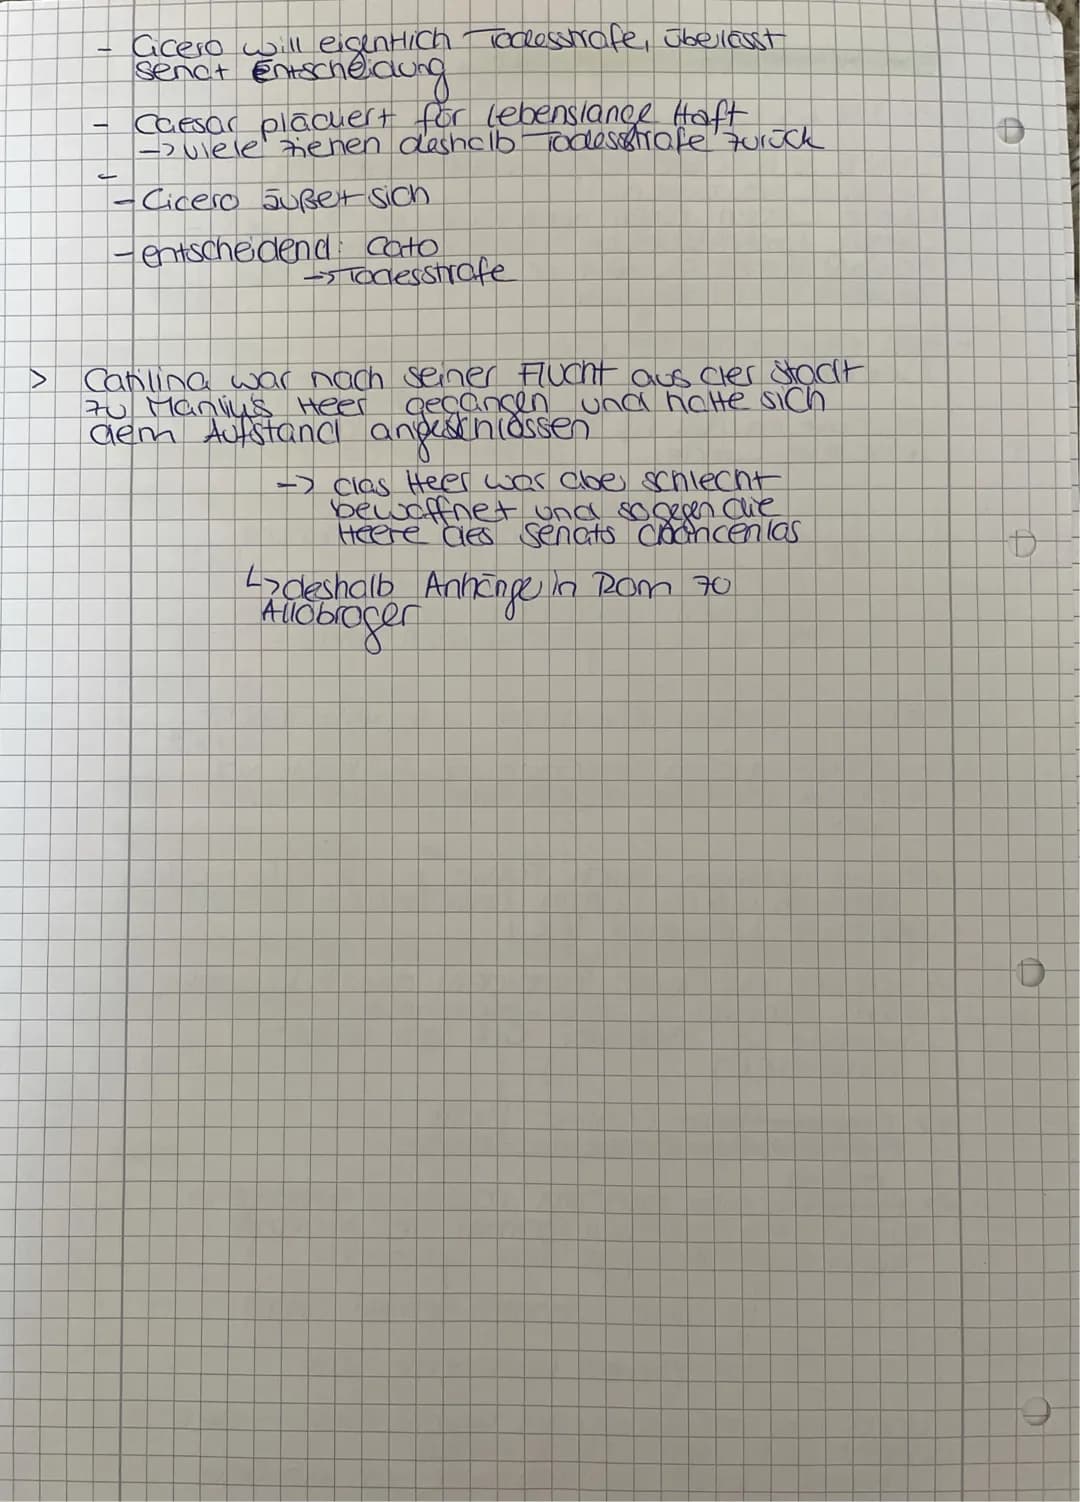 - Cicero will eigentlich Todesstrafe, überlässt
Senat Entscheidung
- Caesar plädiert für lebenslange Haft
-> viele ziehen deshalb Todesstrafe zurück
-
- Cicero äußert sich
- entscheidend: Cato
-> Todesstrafe
> Catilina war nach seiner Flucht aus der Stadt
zu Manlius Heer gegangen und hatte sich
dem Aufstand angeschlossen
-> das Heer war aber schlecht
bewaffnet und so gegen die
Heere des Senats chancenlos
↳ deshalb Anhänge in Rom zu
Allobroger